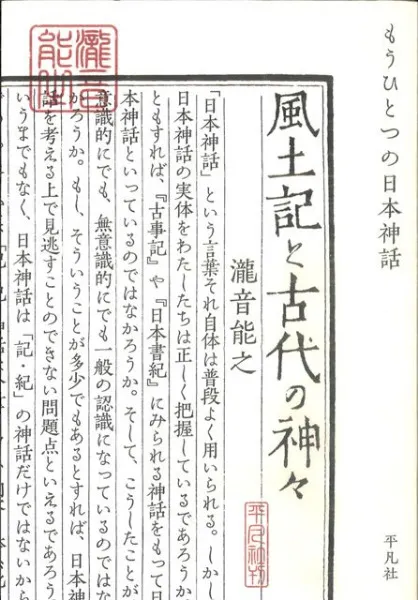 もうひとつの日本神話
平凡社
風土記と古代の神々
瀧音能之
平凡社刊
「日本神話」という言葉それ自体は普段よく用いられる。しかし
日本神話の実体をわたしたちは正しく把握しているであろうか
ともすれば、『古事記』や『日本書紀』にみられる神話をもって日
本神話といっているのではなかろうか。そして、こうしたことが
意識的にでも、無意識的にでも一般の認識になっているのではな
かろうか。もし、そういうことが多少でもあるとすれば、日本神
話を考える上で見逃すことのできない問題点といえるであろう
いうまでもなく、日本神話は「記・紀」の神話だけではないから
瀧音能之